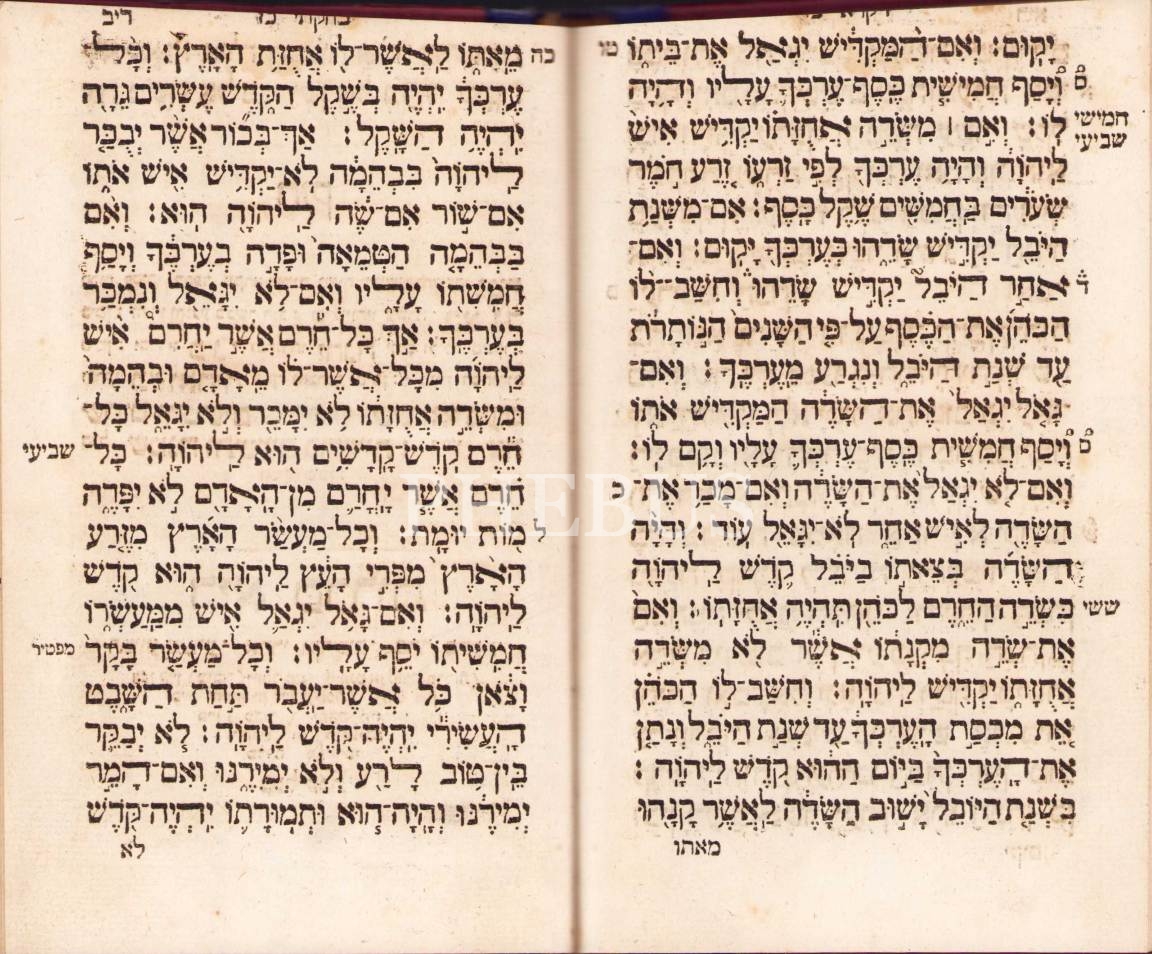 בחקתי כז ריב
יָקוּם׃ וְאִם־הַמַּקְדִּישׁ יִגְאַל אֶת־בֵּיתוֹ טו
וְיָסַף חֲמִישִׁית כֶּסֶף־עֶרְכְּךָ עָלָיו וְהָיָה
חמישי
שביעי
לוֹ׃ וְאִם ׀ מִשְּׂדֵה אֲחֻזָּתוֹ יַקְדִּישׁ אִישׁ
לַיהוָֹה וְהָיָה עֶרְכְּךָ לְפִי זַרְעוֹ זֶרַע חֹמֶר
שְׂעֹרִים בַּחֲמִשִּׁים שֶׁקֶל כָּסֶף׃ אִם־מִשְּׁנַת
הַיֹּבֵל יַקְדִּישׁ שָׂדֵהוּ כְּעֶרְכְּךָ יָקוּם׃ וְאִם־
אַחַר הַיֹּבֵל יַקְדִּישׁ שָׂדֵהוּ וְחִשַּׁב־לוֹ
הַכֹּהֵן אֶת־הַכֶּסֶף עַל־פִּי הַשָּׁנִים הַנּוֹתָרֹת
עַד שְׁנַת הַיֹּבֵל וְנִגְרַע מֵעֶרְכֶּךָ׃ וְאִם־
גָּאֹל יִגְאַל אֶת־הַשָּׂדֶה הַמַּקְדִּישׁ אֹתוֹ
וְיָסַף חֲמִשִׁית כֶּסֶף־עֶרְכְּךָ עָלָיו וְקָם לוֹ׃
וְאִם־לֹא יִגְאַל אֶת־הַשָּׂדֶה וְאִם־מָכַר אֶת־ כ
הַשָּׂדֶה לְאִישׁ אַחֵר לֹא־יִגָּאֵל עוֹד׃ וְהָיָה
הַשָּׂדֶה בְּצֵאתוֹ בַיֹּבֵל קֹדֶשׁ לַיהוָֹה
כִּשְׂדֵה הַחֵרֶם לַכֹּהֵן תִּהְיֶה אֲחֻזָּתוֹ׃ וְאִם ששי
אֶת־שְׂדֵה מִקְנָתוֹ אֲשֶׁר לֹא מִשְּׂדֵה
אֲחֻזָּתוֹ יַקְדִּישׁ לַיהוָֹה׃ וְחִשַּׁב־לוֹ הַכֹּהֵן
אֵת מִכְסַת הָעֶרְכְּךָ עַד שְׁנַת הַיֹּבֵל וְנָתַן
אֶת־הָעֶרְכְּךָ בַּיּוֹם הַהוּא קֹדֶשׁ לַיהוָֹה׃
בִּשְׁנַת הַיּוֹבֵל יָשׁוּב הַשָּׂדֶה לַאֲשֶׁר קָנָהוּ
מאתו
כה מֵאִתּוֹ לַאֲשֶׁר־לוֹ אֲחֻזַּת הָאָרֶץ׃ וְכָל־
עֶרְכְּךָ יִהְיֶה בְּשֶׁקֶל הַקֹּדֶשׁ עֶשְׂרִים גֵּרָה
יִהְיֶה הַשָּׁקֶל׃ אַךְ־בְּכוֹר אֲשֶׁר יְבֻכַּר
לַיהוָֹה בִּבְהֵמָה לֹא־יַקְדִּישׁ אִישׁ אֹתוֹ
אִם־שׁוֹר אִם־שֶׂה לַיהוָֹה הוּא׃ וְאִם
בַּבְּהֵמָה הַטְּמֵאָה וּפָדָה בְעֶרְכֶּךָ וְיָסַף
חֲמִשִׁתוֹ עָלָיו וְאִם־לֹא יִגָּאֵל וְנִמְכַּר
בְּעֶרְכֶּךָ׃ אַךְ כָּל־חֵרֶם אֲשֶׁר יַחֲרִם אִישׁ
לַיהוָֹה מִכָּל־אֲשֶׁר־לוֹ מֵאָדָם וּבְהֵמָה
וּמִשְּׂדֵה אֲחֻזָּתוֹ לֹא יִמָּכֵר וְלֹא יִגָּאֵל כָּל־
חֵרֶם קֹדֶשׁ־קָדָשִׁים הוּא לַיהוָֹה׃ כָּל־ שביעי
חֵרֶם אֲשֶׁר יָחֳרַם מִן־הָאָדָם לֹא יִפָּדֶה
ל מוֹת יוּמָת׃ וְכָל־מַעְשַׂר הָאָרֶץ מִזֶּרַע
הָאָרֶץ מִפְּרִי הָעֵץ לַיהוָֹה הוּא קֹדֶשׁ
לַיהוָֹה׃ וְאִם־גָּאֹל יִגְאַל אִישׁ מִמַּעַשְׂרוֹ
חֲמִשִׁיתוֹ יֹסֵף עָלָיו׃ וְכָל־מַעְשַׂר בָּקָר מפטיר
וָצֹאן כֹּל אֲשֶׁר־יַעֲבֹר תַּחַת הַשָּׁבֶט
הָעֲשִׂירִי יִהְיֶה־קֹּדֶשׁ לַיהוָֹה׃ לֹא יְבַקֵּר
בֵּין־טוֹב לָרַע וְלֹא יְמִירֶנּוּ וְאִם־הָמֵר
יְמִירֶנּוּ וְהָיָה־הוּא וּתְמוּרָתוֹ יִהְיֶה־קֹדֶשׁ
לא
PHEBUS